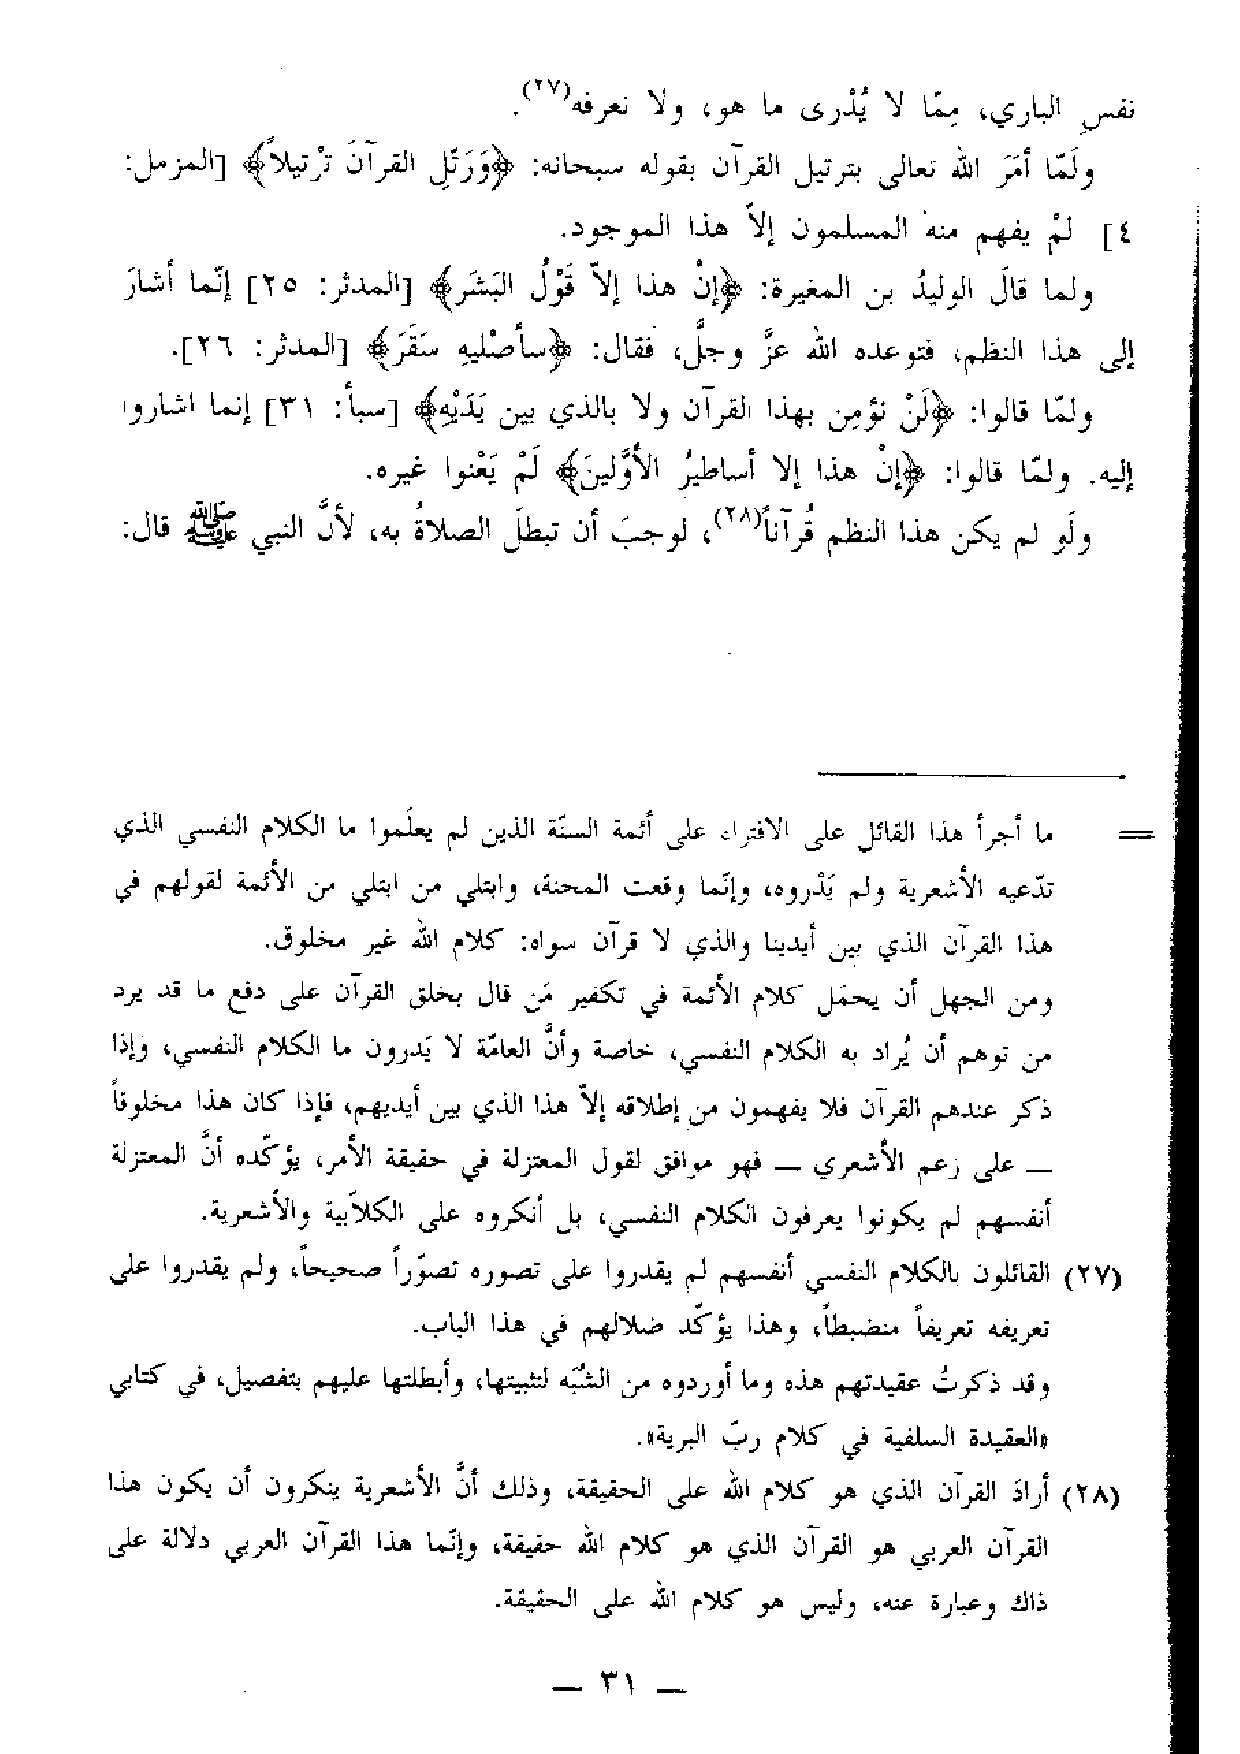 نفس الباري، مِمّا لا يُدْرى ما هو، ولا نعرفه(٢٧).
ولَمّا أَمَرَ الله تعالى بترتيل القرآن بقوله سبحانه: ﴿وَرَتِّلِ القرآنَ تَرْتيلاً﴾ [المزمل:
٤] لمْ يفهم منه المسلمون إلاّ هذا الموجود.
ولما قالَ الوليدُ بن المغيرة: ﴿إنْ هذا إلاّ قَوْلُ البَشَر﴾ [المدثر: ٢٥] إنّما أشارَ
إلى هذا النظم، فتوعده الله عزَّ وجلَّ، فقال: ﴿سأصْليهِ سَقَرَ﴾ [المدثر: ٢٦].
ولمّا قالوا: ﴿لَنْ نؤمِن بهذا القرآن ولا بالذي بين يَدَيْهِ﴾ [سبأ: ٣١] إنما اشاروا
إليه. ولمّا قالوا: ﴿إنْ هذا إلا أساطيرُ الأوَّلينَ﴾ لَمْ يَعْنوا غيره.
ولَو لم يكن هذا النظم قُرآناً(٢٨)، لوجبَ أن تبطلَ الصلاةُ به، لأنَّ النبي ﷺ قال:
= ما أجرأ هذا القائل على الافتراء على أئمة السنّة الذين لم يعلَموا ما الكلام النفسي الذي
تدّعيه الأشعرية ولم يَدْروه، وإنّما وقعت المحنة، وابتلي من ابتلي من الأئمة لقولهم في
هذا القرآن الذي بين أيدينا والذي لا قرآن سواه: كلام الله غير مخلوق.
ومن الجهل أن يحمَل كلام الأئمة في تكفير مَن قال بخلق القرآن على دفع ما قد يرد
من توهم أن يُراد به الكلام النفسي، خاصة وأنَّ العامّة لا يَدرون ما الكلام النفسي، وإذا
ذكر عندهم القرآن فلا يفهمون من إطلاقه إلاّ هذا الذي بين أيديهم، فإذا كان هذا مخلوقاً
— على زعم الأشعري — فهو موافق لقول المعتزلة في حقيقة الأمر، يؤكّده أنَّ المعتزلة
أنفسهم لم يكونوا يعرفون الكلام النفسي، بل أنكروه على الكلاّبية والأشعرية.
(٢٧) القائلون بالكلام النفسي أنفسهم لم يقدروا على تصوره تصوّراً صحيحاً، ولم يقدروا على
تعريفه تعريفاً منضبطاً، وهذا يؤكّد ضلالهم في هذا الباب.
وقد ذكرتُ عقيدتهم هذه وما أوردوه من الشُّبَه لتثبيتها، وأبطلتها عليهم بتفصيل، في كتابي
«العقيدة السلفية في كلام ربّ البرية».
(٢٨) أرادَ القرآن الذي هو كلام الله على الحقيقة، وذلك أنَّ الأشعرية ينكرون أن يكون هذا
القرآن العربي هو القرآن الذي هو كلام الله حقيقة، وإنّما هذا القرآن العربي دلالة على
ذاك وعبارة عنه، وليس هو كلام الله على الحقيقة.
— ٣١ —